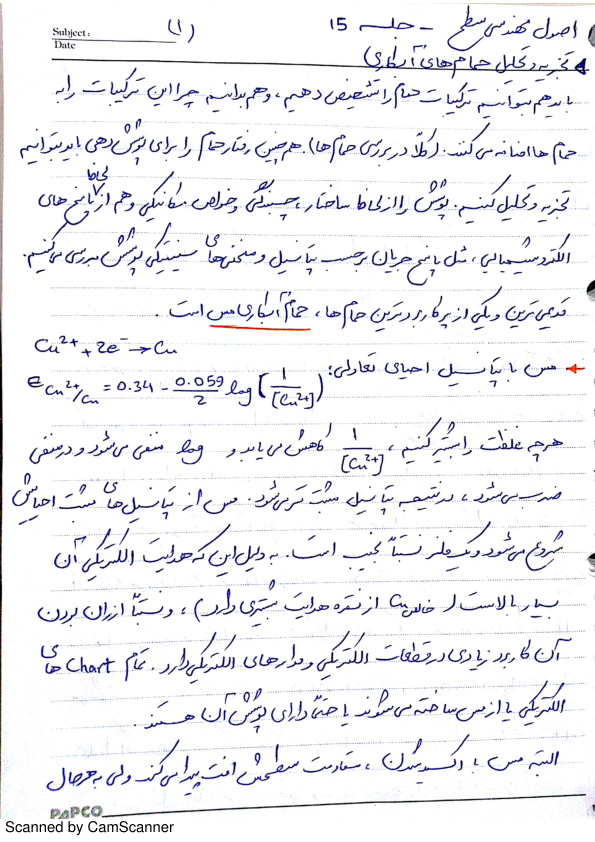 Subject:
Date
(۱)
اصول مهندسی سطح - جلسه 15
تجزیه و تحلیل حمام‌های آبکاری
باید هم بتوانیم ترکیبات حمام را تشخیص دهیم، و هم بدانیم چرا این ترکیبات را به
حمام‌ها اضافه می‌کنند. (کلاً در بررسی حمام‌ها). همچنین رفتار حمام را برای پوشش‌دهی باید بتوانیم
تجزیه و تحلیل کنیم. پوشش را از لحاظ ساختار، چسبندگی و خواص مکانیکی و هم از لحاظ پاسخ‌های
الکتروشیمیایی، مثل پاسخ جریان برحسب پتانسیل و منحنی‌های سینتیکی پوشش بررسی می‌کنیم.
قدیمی‌ترین و یکی از پرکاربردترین حمام‌ها، حمام آبکاری مس است.
Cu²⁺ + 2e⁻ → Cu
مس با پتانسیل احیای تعادلی:
E Cu²⁺/Cu = 0.34 - 0.059/2 log (1/[Cu²⁺])
هرچه غلظت را بیشتر کنیم، 1/[Cu²⁺] کاهش می‌یابد و log منفی می‌شود و در منفی
ضرب می‌شود، در نتیجه پتانسیل مثبت‌تر می‌شود. مس از پتانسیل‌های مثبت احیایش
شروع می‌شود و یک فلز نسبتاً نجیب است. به دلیل این که هدایت الکتریکی آن
بسیار بالاست (Cu خالص از نقره هدایت بیشتری دارد)، و نسبتاً ارزان بودن
آن کاربرد زیادی در قطعات الکتریکی و مدارهای الکتریکی دارد. تمام Chart های
الکتریکی یا از مس ساخته می‌شوند یا حتی دارای پوشش آن هستند.
البته مس با اکسید شدن، مقاومت سطحش افت پیدا می‌کند ولی به هرحال
PAPCO
Scanned by CamScanner